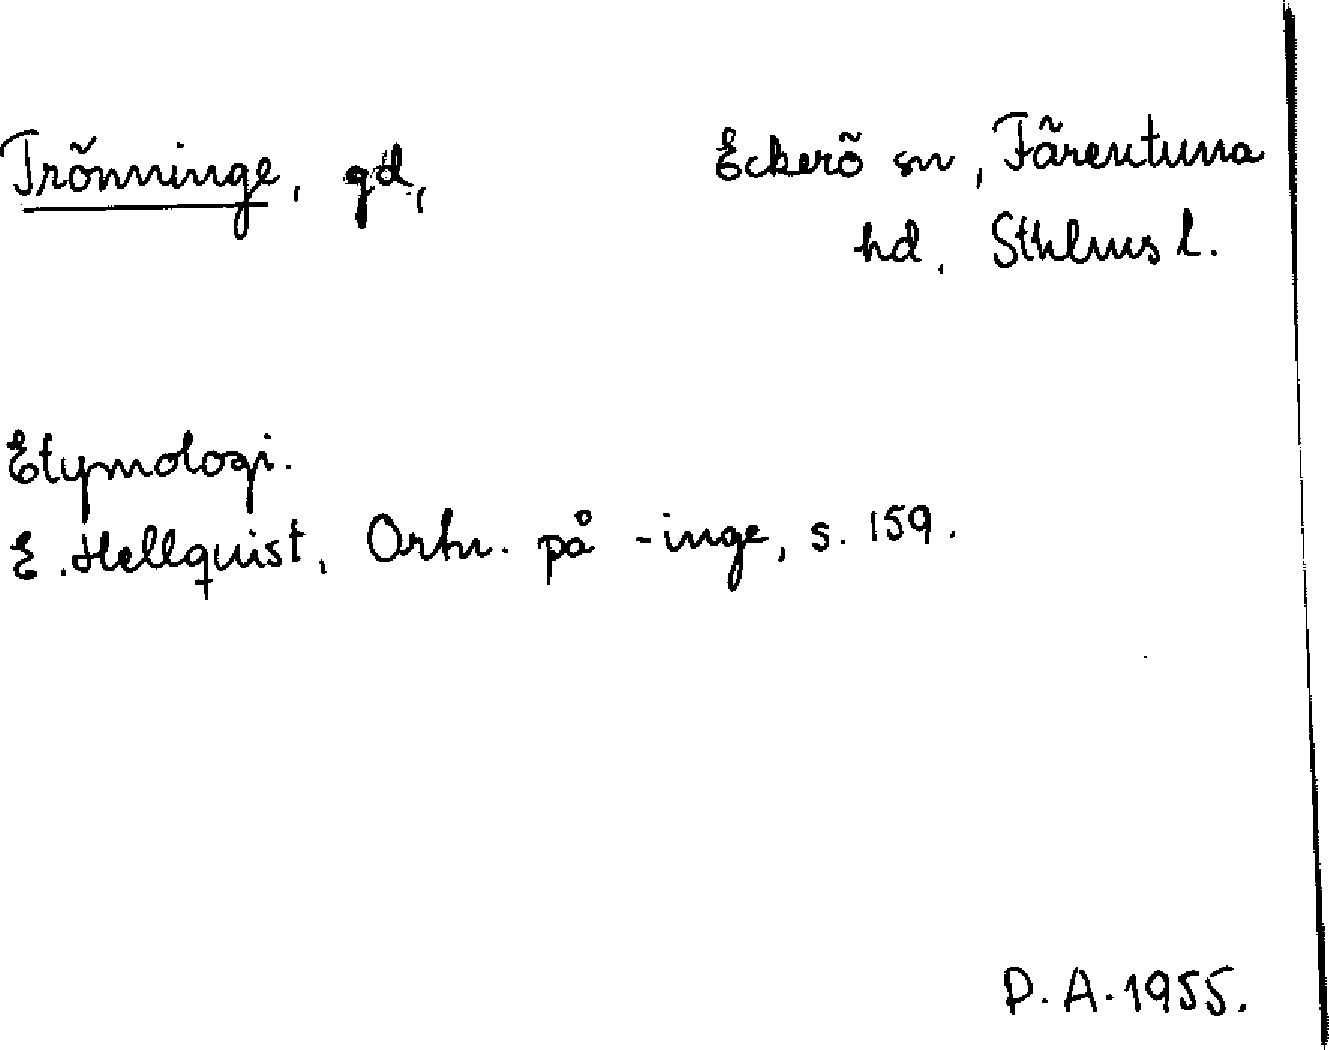 Trönninge, gd, Eckerö sn, Färentuna
hd, Sthlms l.
Etymologi.
E. Hellquist, Ortn. på -inge, s. 159.
P. A. 1955.